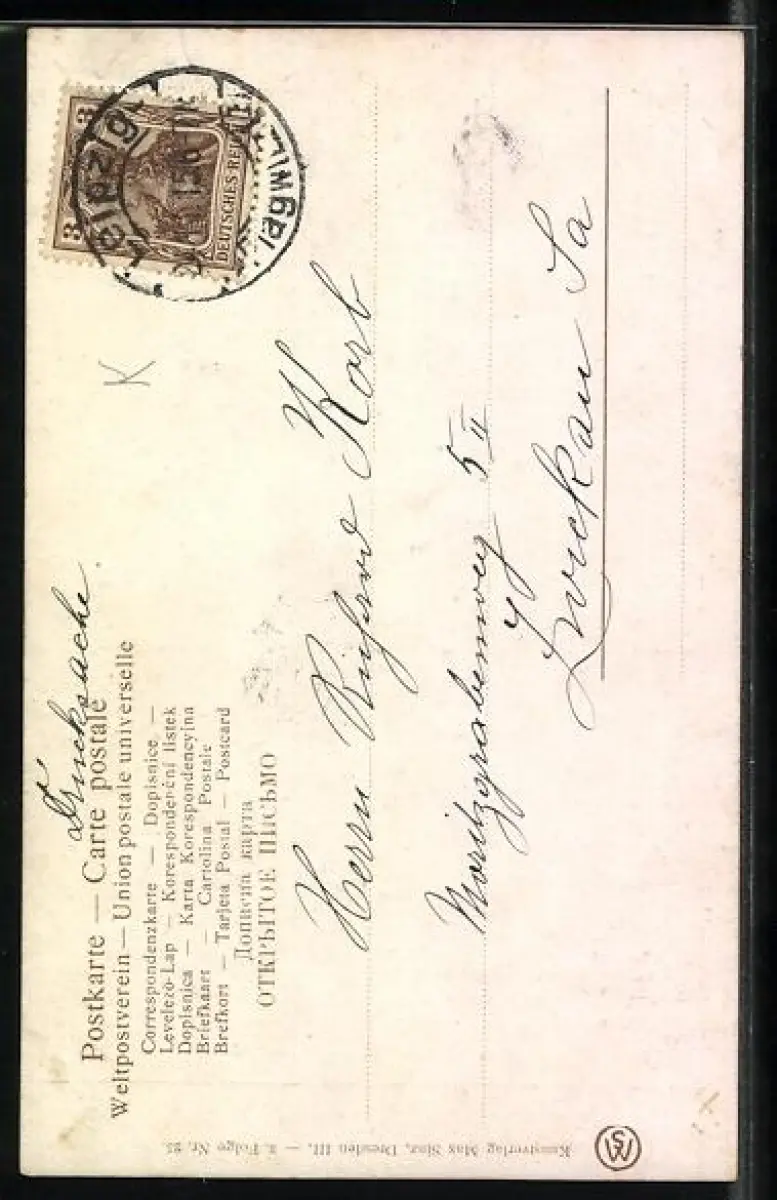 Drucksache.
Postkarte — Carte postale
Weltpostverein — Union postale universelle
Correspondenzkarte — Dopisnice —
Levelező-Lap — Korespondenční lístek
Dopisnica — Karta Korespondencyjna
Briefkaart — Cartolina Postale
Brefkort — Tarjeta Postal — Postcard
Дописна карта
ОТКРЫТОЕ ПИСЬМО
K
3 3
DEUTSCHES REICH
Leipzig
Herrn Korb
Moritzgrabenweg 5 II
Zwickau Sa
Kunstverlag Max Sinz, Dresden III. — 3. Folge Nr. 25.